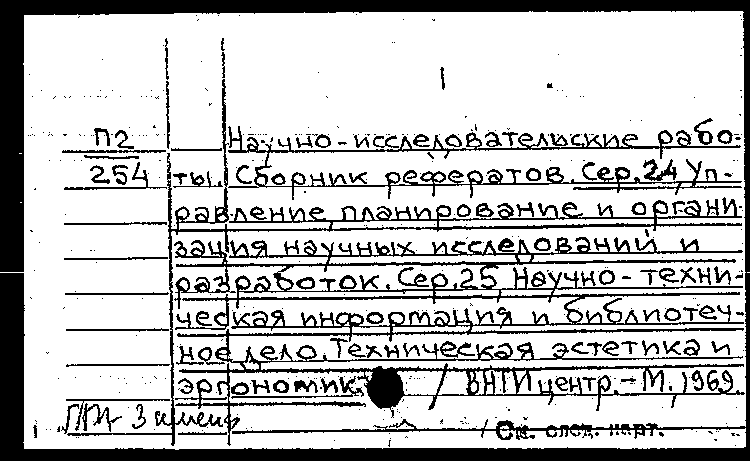 П2
254
Научно-исследовательские рабо-
ты. Сборник рефератов. Сер.24, Уп-
равление, планирование и органи
зация научных исследований и
разработок. Сер.25, Научно-техни-
ческая информация и библиотеч-
ное дело. Техническая эстетика и
эргономика / ВНТИцентр.-М., 1969
См. след. карт.